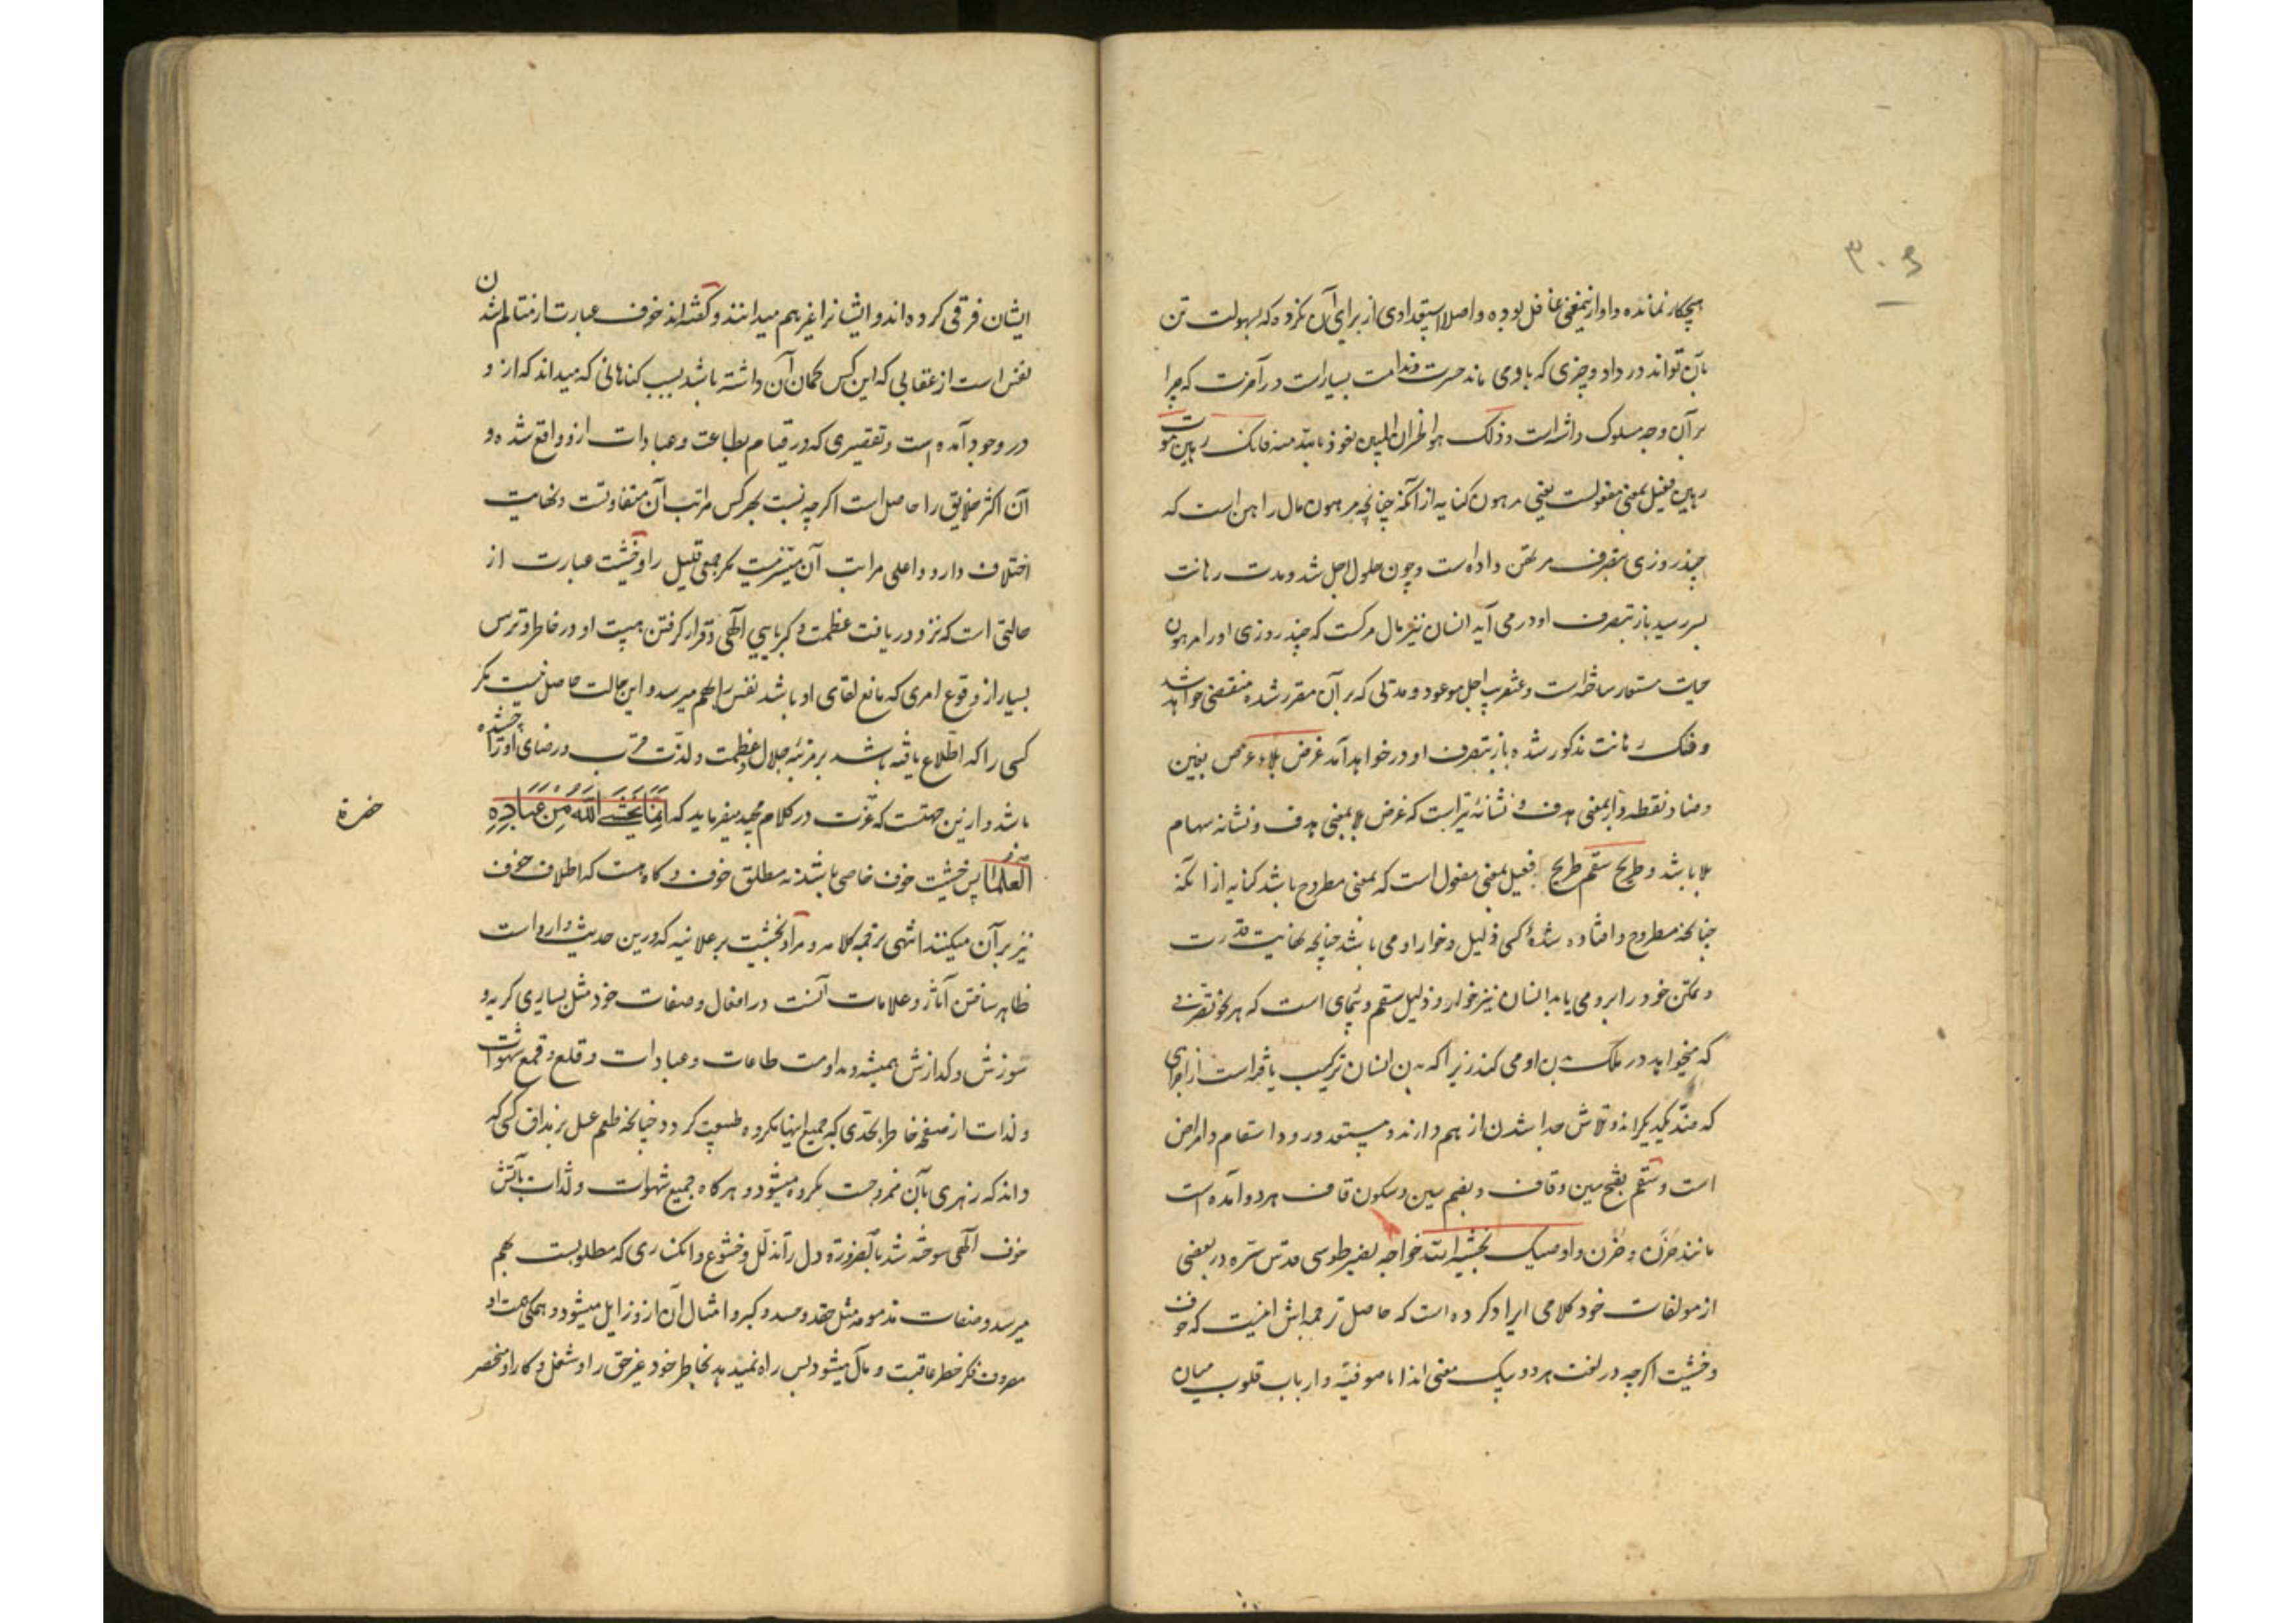 ۳۰۶
هیچکار نمانده و او ازینمعنی غافل بوده و اصلا استعدادی از برای آن نکرده که بسهولت تن
بآن تواند در داد و چیزی که با وی ماند حسرت و ندامت بسیار است در آخرت که چرا
بر آن وجه سلوک داشته است و ذلک هو الخسران المبین نعوذ بالله منه فانک رهین موت
رهین فعیل بمعنی مفعولست یعنی مرهون کنایه از آنکه چنانچه مرهون مال راهن است که
چند روزی بتصرف مرتهن داده است و چون حلول اجل شد و مدت رهانت
بسر رسید باز بتصرف او در می آید انسان نیز مال مرکست که چند روزی او را مرهون
حیات مستعار ساخته است و عنقریب اجل موعود و مدتی که بر آن مقرر شده منقضی خواهد شد
و فک رهانت مذکور شده باز بتصرف او در خواهد آمد غرض بلاء غرض بغین
و ضاد نقطه دار بمعنی هدف و نشانه تیر است که غرض بلا بمعنی هدف و نشانه سهام
بلا باشد و طریح سقم طریح فعیل بمعنی مفعول است که بمعنی مطروح باشد کنایه از آنکه
چنانچه مطروح و افتاده شده کسی ذلیل و خوار او می باشد چنانچه نهایت قدرت
و تمکن خود را برو می یابد انسان نیز خوار و ذلیل سقم و بیماری است که هر نحو تصرفی
که میخواهد در ملک بدن او می کند زیرا که بدن انسان ترکیب یافته است از اجزای
که ضد یکدیگراند و تلاش جدا شدن از هم دارند و مستعد ورود اسقام و امراض
است و سقم بفتح سین و قاف و بضم سین و سکون قاف هر دو آمده است
مانند حَزَن و حُزْن و اوصیک بخشیة الله خواجه نصیر طوسی قدس سره در بعضی
از مولفات خود کلامی ایراد کرده است که حاصل ترجمه اش اینست که خوف
و خشیت اگرچه در لغت هر دو بیک معنی اند اما صوفیه و ارباب قلوب میان
ایشان فرقی کرده اند و ایشانرا غیر هم میدانند و گفته اند خوف عبارت از متالم شدن
نفس است از عقابی که این کس گمان آن داشته باشد بسبب گناهانی که میداند که از و
در وجود آمده است و تقصیری که در قیام بطاعت و عبادات ازو واقع شده و
آن اکثر خلایق را حاصل است اگرچه نسبت بهرکس مراتب آن متفاوتست و نهایت
اختلاف دارد و اعلی مراتب آن میسر نیست مگر جمعی قلیل را و خشیت عبارت از
حالتی است که نزد دریافت عظمت و کبریایی الهی و قرار گرفتن هیبت او در خاطر و ترس
بسیار از وقوع امری که مانع لقای او باشد نفس را بهم میرسد و این حالت حاصل نیست مگر
کسی را که اطلاع یافته باشد بر مرتبه جلال و عظمت و لذت قرب و رضای او را چشیده
باشد و ازین جهتست که عزت در کلام مجید میفرماید که اِنَّمَا یَخْشَی اللّٰهَ مِنْ عِبَادِهِ
حضرة
العلماء پس خشیت خوف خاصی باشد نه مطلق خوف و گاه هست که اطلاق خوف
نیز بر آن میکنند انتهی ترجمه کلامه و مراد بخشیت بر علانیه که درین حدیث وارد است
ظاهر ساختن آثار و علامات آنست در افعال و صفات خود مثل بسیاری گریه و
سوزش و گدازش همیشه و مداومت طاعات و عبادات و قلع و قمع شهوات
و لذات از صفحه خاطر بحدی که جمیع اینها مکروه طبیعت گردد چنانچه طعم عسل بر مذاق کسی که
داند که زهری بآن ممزوجست مکروه میشود و هرگاه جمیع شهوات و لذات بآتش
خوف الهی سوخته شد بالضرورة دل را تذلل و خشوع و انکساری که مطلوبست بهم
میرسد و صفات مذمومه مثل حقد و حسد و کبر و امثال آن ازو زایل میشود و همگی همت او
مصروف فکر خطر عاقبت و مآل میشود پس راه نمیدهد بخاطر خود غیر حق را و شغل و کار او منحصر